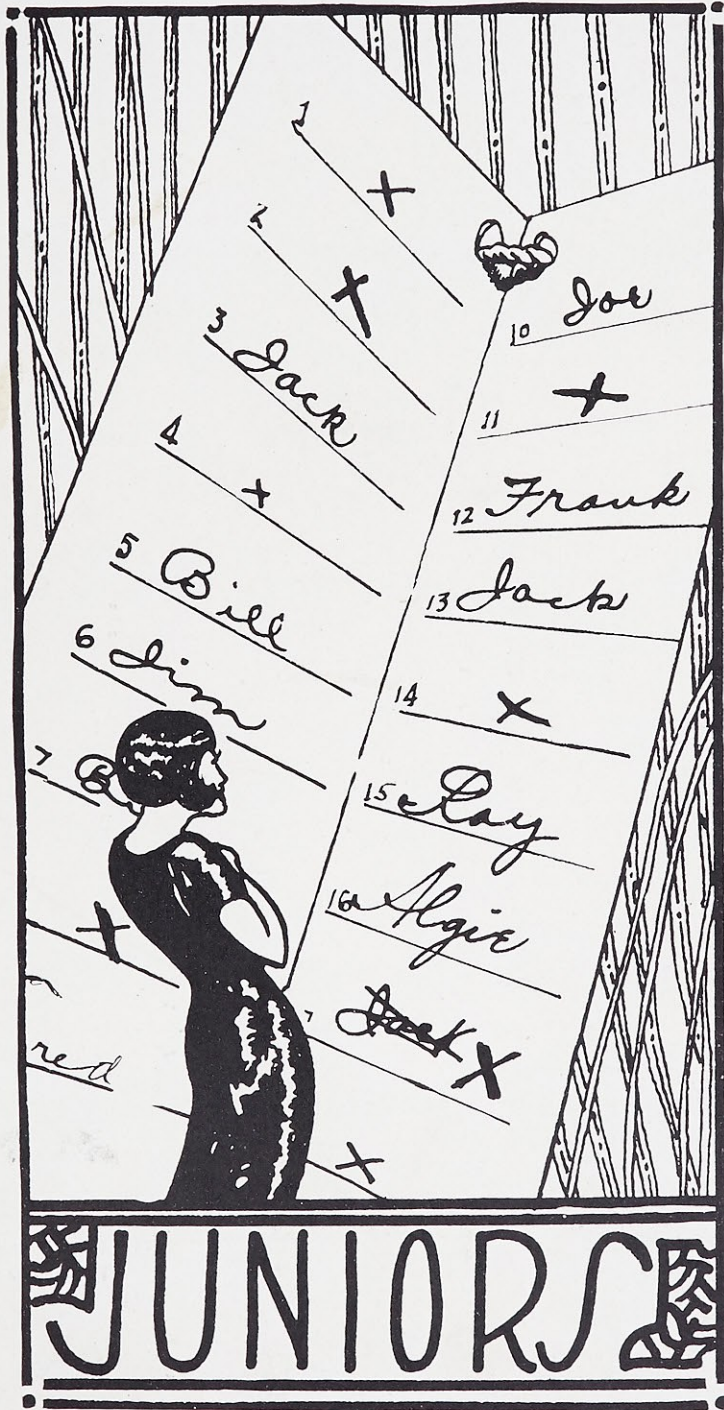 1 X
2 X
3 Jack
4 X
5 Bill
6 Jim
7 B
X
red
10 Joe
11 X
12 Frank
13 Jack
14 X
15 Ray
16 Algie
7 Jack X
X
JUNIORS